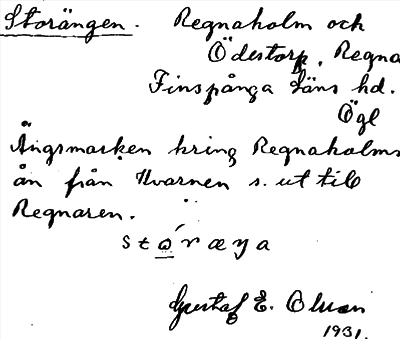 Storängen. Regnaholm och
Ödestorp, Regna
Finspånga läns hd.
Ögl
Ängsmarken kring Regnaholms
ån från Kvarnen s. ut till
Regnaren.
Gustaf E. Olsson
1931.